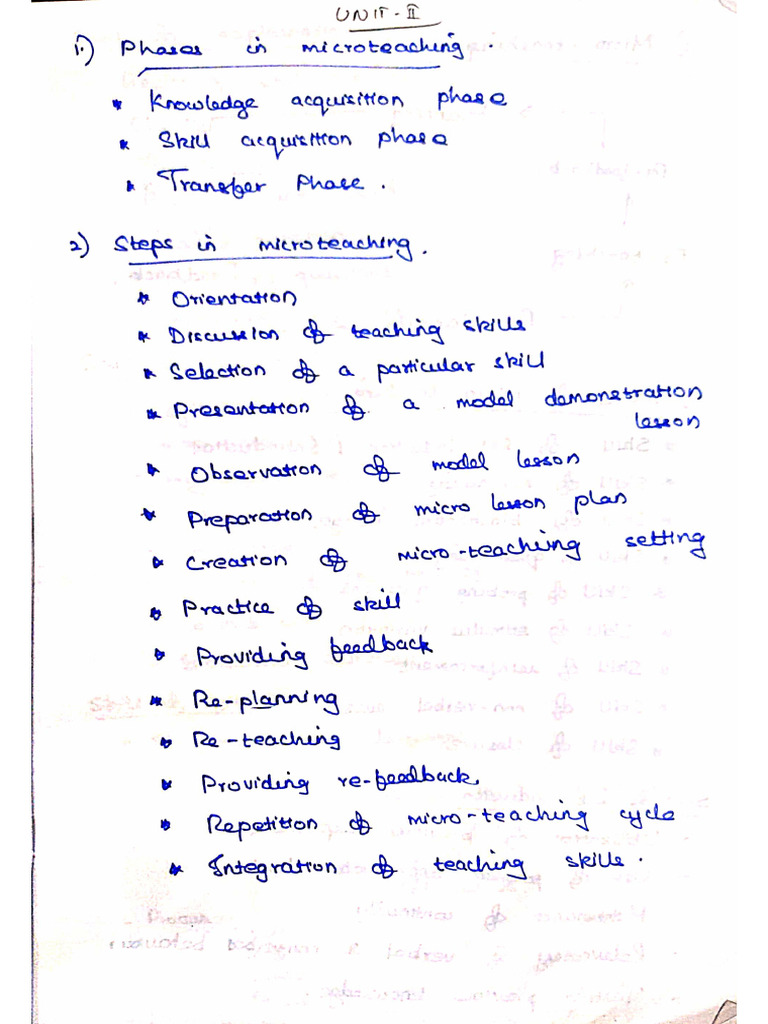 UNIT-II
1.) Phases in microteaching.
* Knowledge acquisition phase
* Skill acquisition phase
* Transfer Phase.
2) Steps in microteaching.
* Orientation
* Discussion of teaching skills
* Selection of a particular skill
* Presentation of a model demonstration
lesson
* Observation of model lesson
* Preparation of micro lesson plan
* Creation of micro-teaching setting
* Practice of skill
* Providing feedback
* Re-planning
* Re-teaching
* Providing re-feedback
* Repetition of micro-teaching cycle
* Integration of teaching skills.